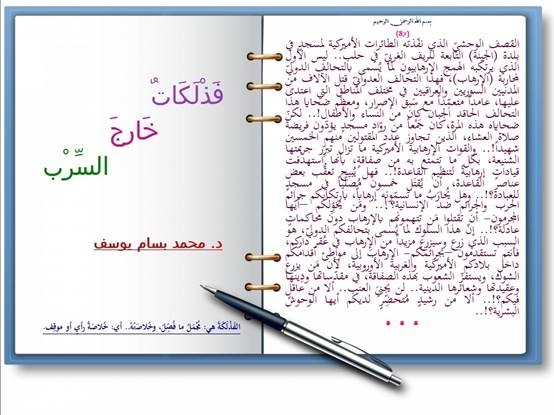 بسم الله الرحمن الرحيم
(87)
القصف الوحشيّ الذي نفّذته الطائرات الأميركية لمسجدٍ في
بلدة (الجينة) التابعة للريف الغربيّ في حلب.. ليس الأول
الذي يرتكبه الهمج الإرهابيون لما يُسمى بالتحالف الدوليّ
لمحاربة (الإرهاب)، فهذا التحالف العدوانيّ قتل الآلاف من
المدنيين السوريين والعراقيين في مختلف المناطق التي اعتدى
عليها، عامداً متعمّداً مع سَبق الإصرار، ومعظم ضحايا هذا
التحالف الحاقد الجبان كان من النساء والأطفال!.. لكنّ
ضحاياه هذه المرة، كان جَمعاً من روّاد مسجدٍ يؤدّون فريضة
صلاة العشاء، الذين تجاوز عدد المقتولين منهم الخمسين
شهيداً!.. والقوات الإرهابية الأميركية ما تزال تبرّر جريمتها
الشنيعة، بكل ما تتمتع به من صفاقة، بأنها استهدفت
قياداتٍ إرهابيةً لتنظيم القاعدة!.. فهل يُبيح تعقّب بعض
عناصر القاعدة، أن يُقتَل خمسون مُصلّياً في مسجدٍ
للعبادة؟!.. وهل يُحارَب ما تسمّونه إرهاباً، بارتكابكم جرائمَ
الحرب والجرائم ضد الإنسانية؟!.. ومَن يُخوّلكم –أيها
المجرمون- أن تقتلوا مَن تتهمونهم بالإرهاب دون محاكماتٍ
عادلة؟!.. إنّ هذا السلوك لما يُسمى بتحالفكم الدوليّ، هو
السبب الذي زرع وسيزرع مزيداً من الإرهاب في عُقر داركم،
فأنتم تستقدمون –بجرائمكم- الإرهاب إلى مواطئ أقدامكم
داخل بلادكم الأميركية والغربية الأوروبية، لأنّ مَن يزرع
الشوك، ويستفزّ الشعوب بهذه الصفاقة، في مقدّساتها ودِينها
وعقيدتها وشعائرها الدينية.. لن يجنيَ العنب.. ألا من عاقلٍ
فيكم؟!.. ألا من رشيدٍ مُتحضّرٍ لديكم أيها الوحوش
البشرية؟!..
* * *
فَذْلَكَاتٌ
خَارجَ
السِّرْب
د. محمد بسام يوسف
الفَذْلَكَةُ هي: مُجْمَلُ ما فُصِّلَ، وخُلاصَتُهُ.. أي: خُلاصَةُ رأيٍ أو موقِف.